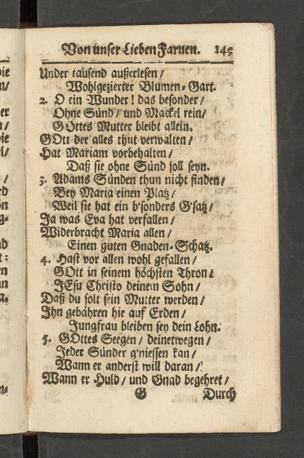 Von unser Lieben Faruen. 145
Under tausend außerlesen /
Wohlgezierter Blumen-Gart.
2. O ein Wunder! das besonder /
Ohne Sünd / und Mackel rein /
GOttes Mutter bleibt allein.
GOtt der alles thut verwalten /
Hat Mariam vorbehalten /
Daß sie ohne Sünd soll seyn.
3. Adams Sünden thun nicht finden /
Bey Maria einen Platz /
Weil sie hat ein b'sonders G'satz /
Ja was Eva hat verfallen /
Widerbracht Maria allen /
Einen guten Gnaden-Schatz.
4. Hast vor allen wohl gefallen /
GOtt in seinem höchsten Thron /
JEsu Christo deinem Sohn /
Daß du solt sein Mutter werden /
Ihn gebähren hie auf Erden /
Jungfrau bleiben sey dein Lohn.
5. GOttes Seegen / deinetwegen /
Jeder Sünder g'niessen kan /
Wann er anderst will daran /
Wann er Huld / und Gnad begehret /
G Durch